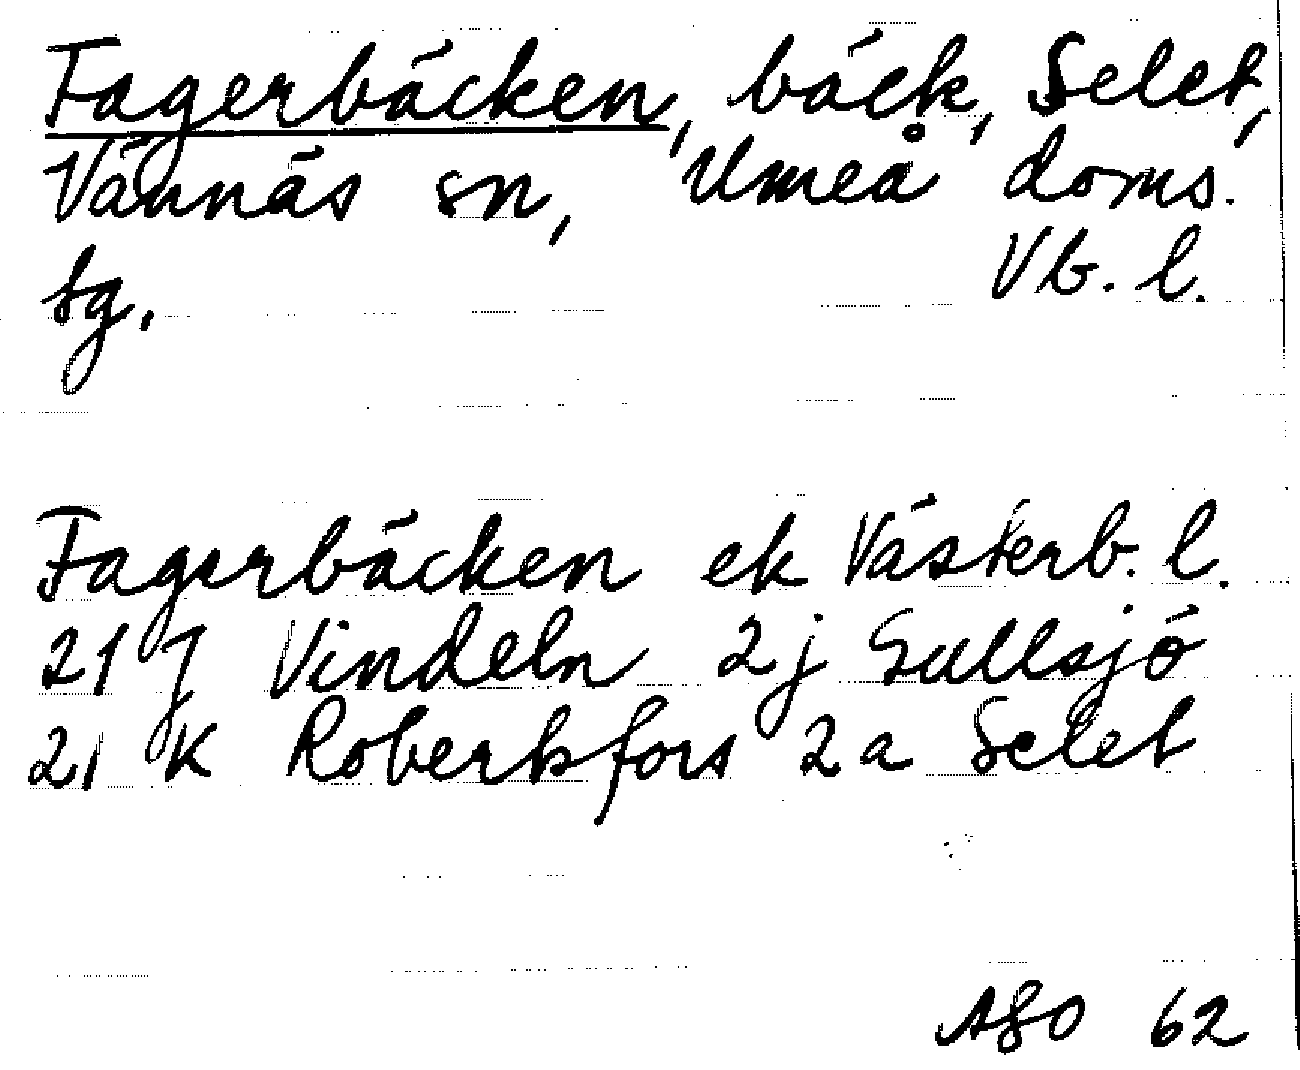 Fagerbäcken, bäck, Selet,
Vännäs sn, Umeå doms.
tg. Vb. l.
Fagerbäcken ek Västerb. l.
21 J Vindeln 2j Gullsjö
21 K Robertsfors 2a Selet
ÅGO 62